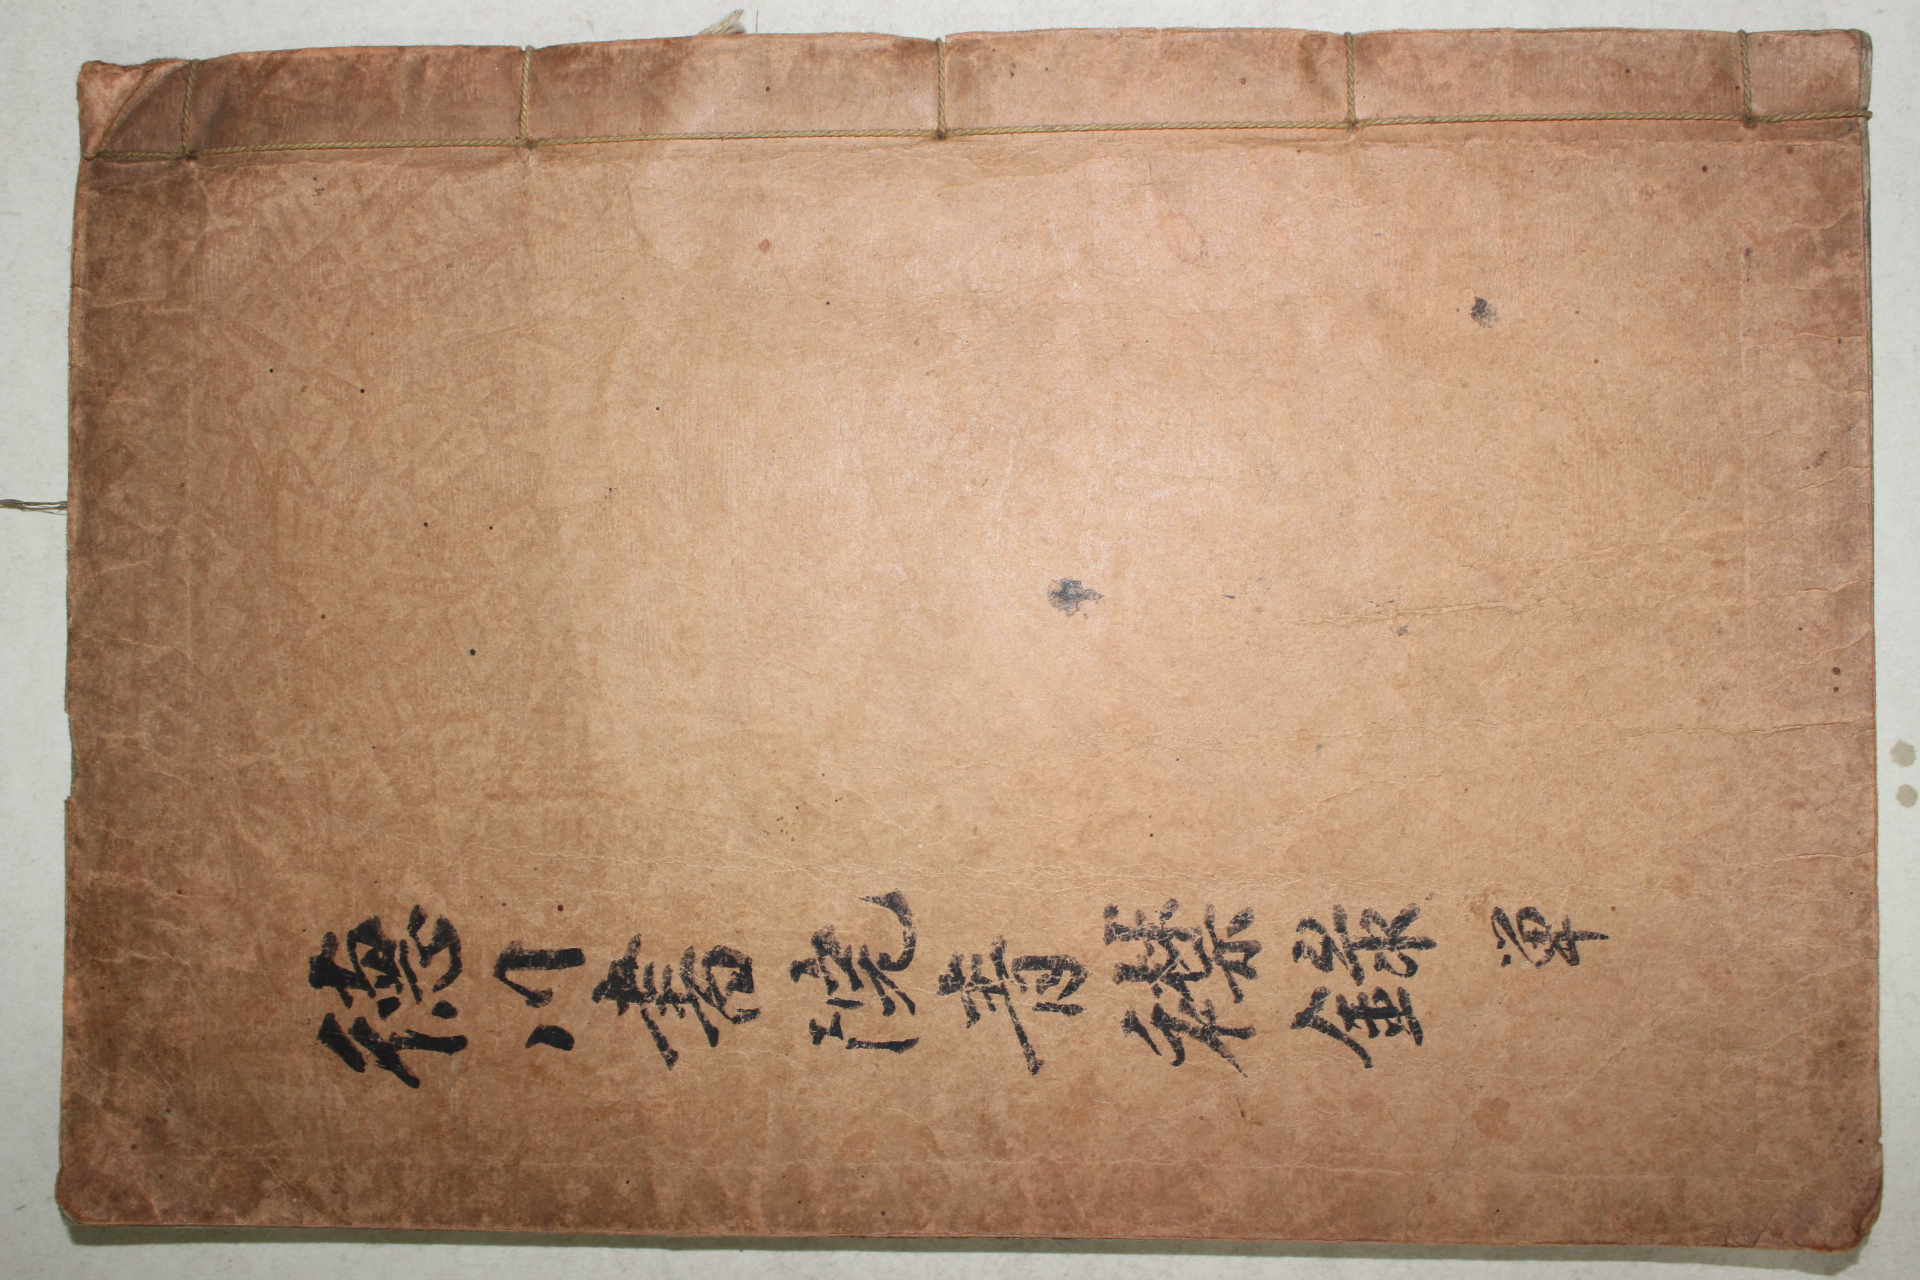 德川書院青襟錄 単